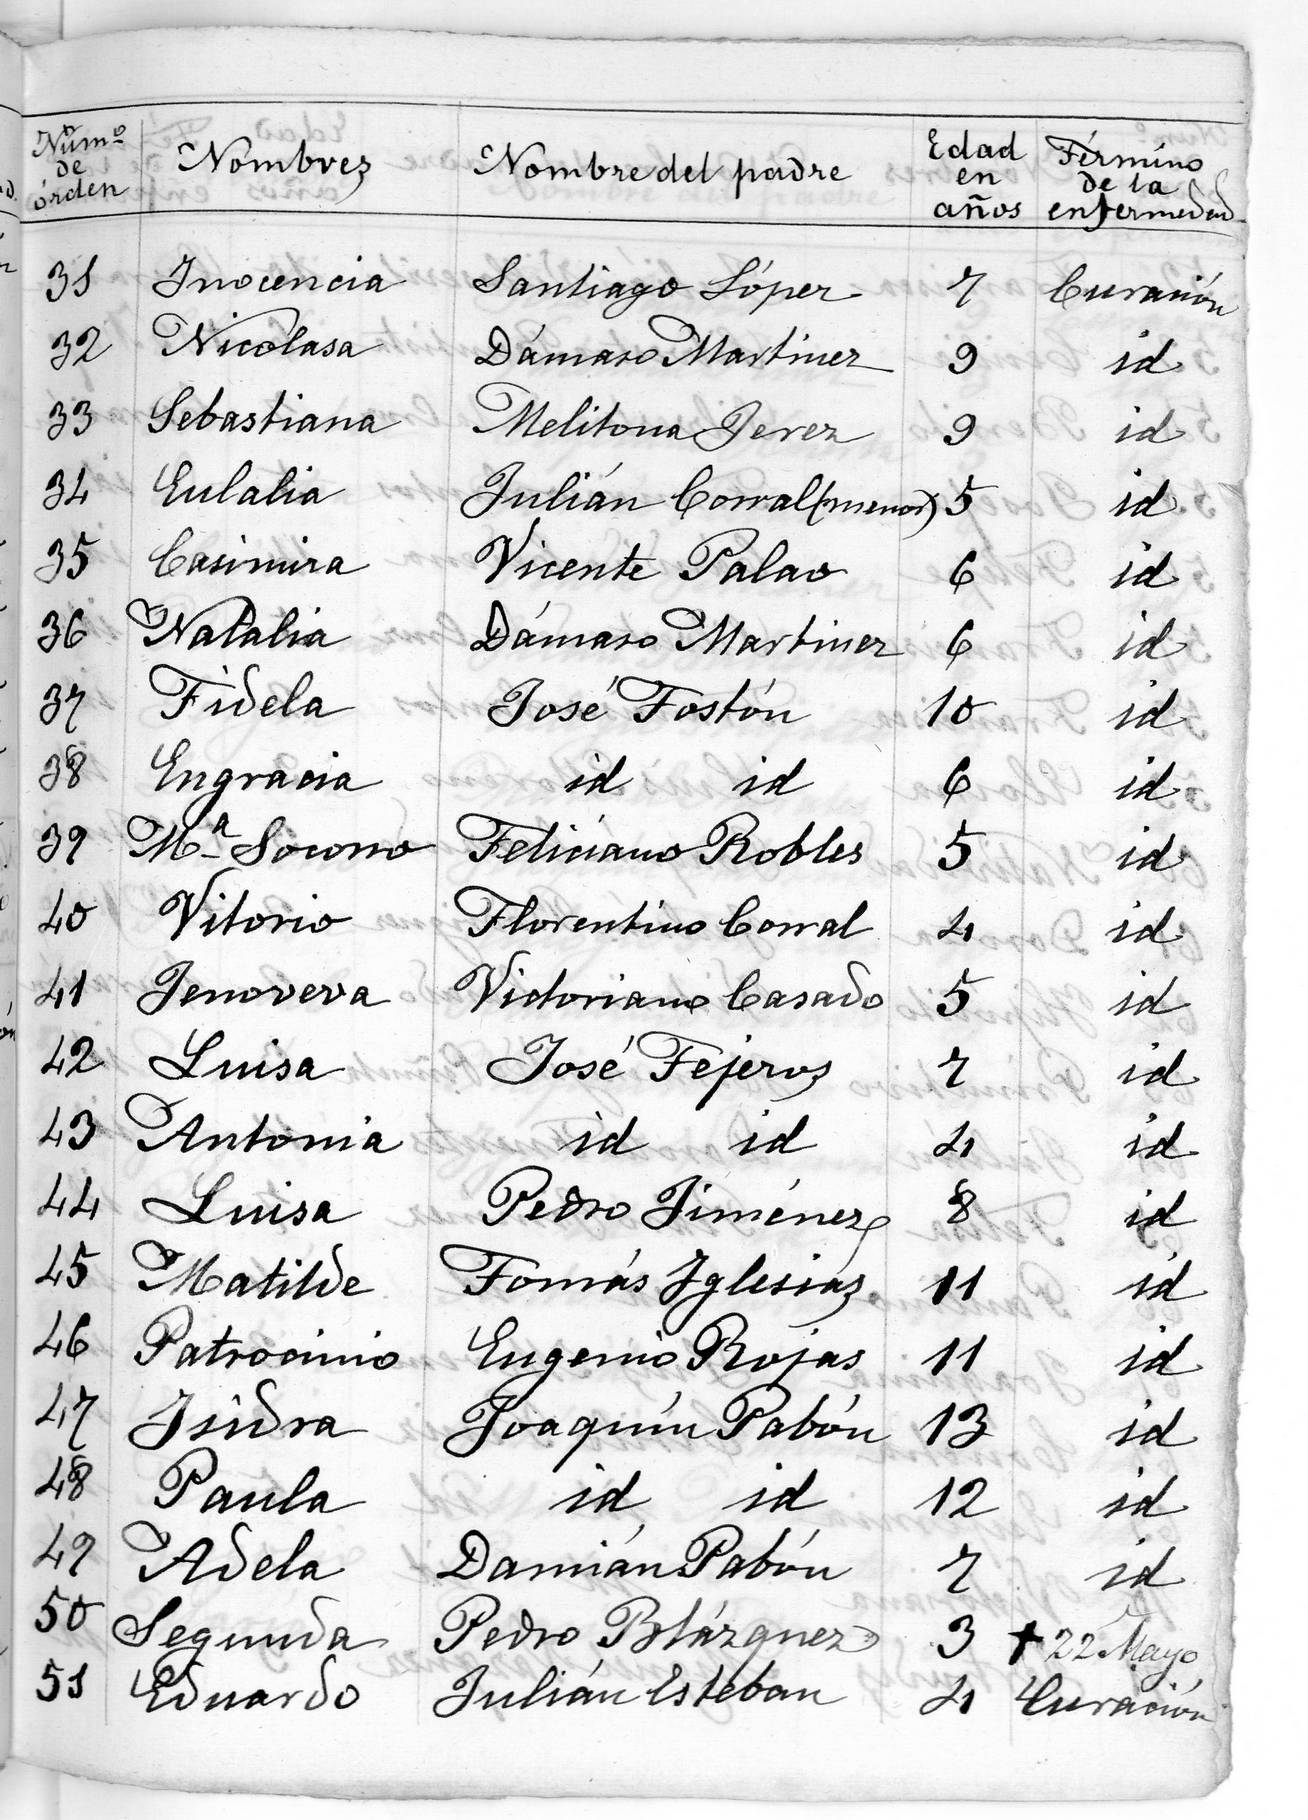 Núm.º de órden Nombres Nombre del padre Edad en años Término de la enfermedad
31 Inocencia Santiago López 7 Curación
32 Nicolasa Dámaso Martinez 9 id
33 Sebastiana Melitona Jerez 9 id
34 Eulalia Julián Corral (menor) 5 id
35 Casimira Vicente Palao 6 id
36 Natalia Dámaso Martinez 6 id
37 Fidela José Tostón 10 id
38 Engracia id id 6 id
39 M.ª Socorro Feliciano Robles 5 id
40 Vitorio Florentino Corral 4 id
41 Jenoveva Victoriano Casado 5 id
42 Luisa José Tejeros 7 id
43 Antonia id id 4 id
44 Luisa Pedro Jiménez 8 id
45 Matilde Tomás Iglesias 11 id
46 Patrocinio Eugenio Rojas 11 id
47 Isidra Joaquín Pabón 13 id
48 Paula id id 12 id
49 Adela Damián Pabón 7 id
50 Segunda Pedro Blázquez 3 † 22 Mayo
51 Eduardo Julián Esteban 4 Curación